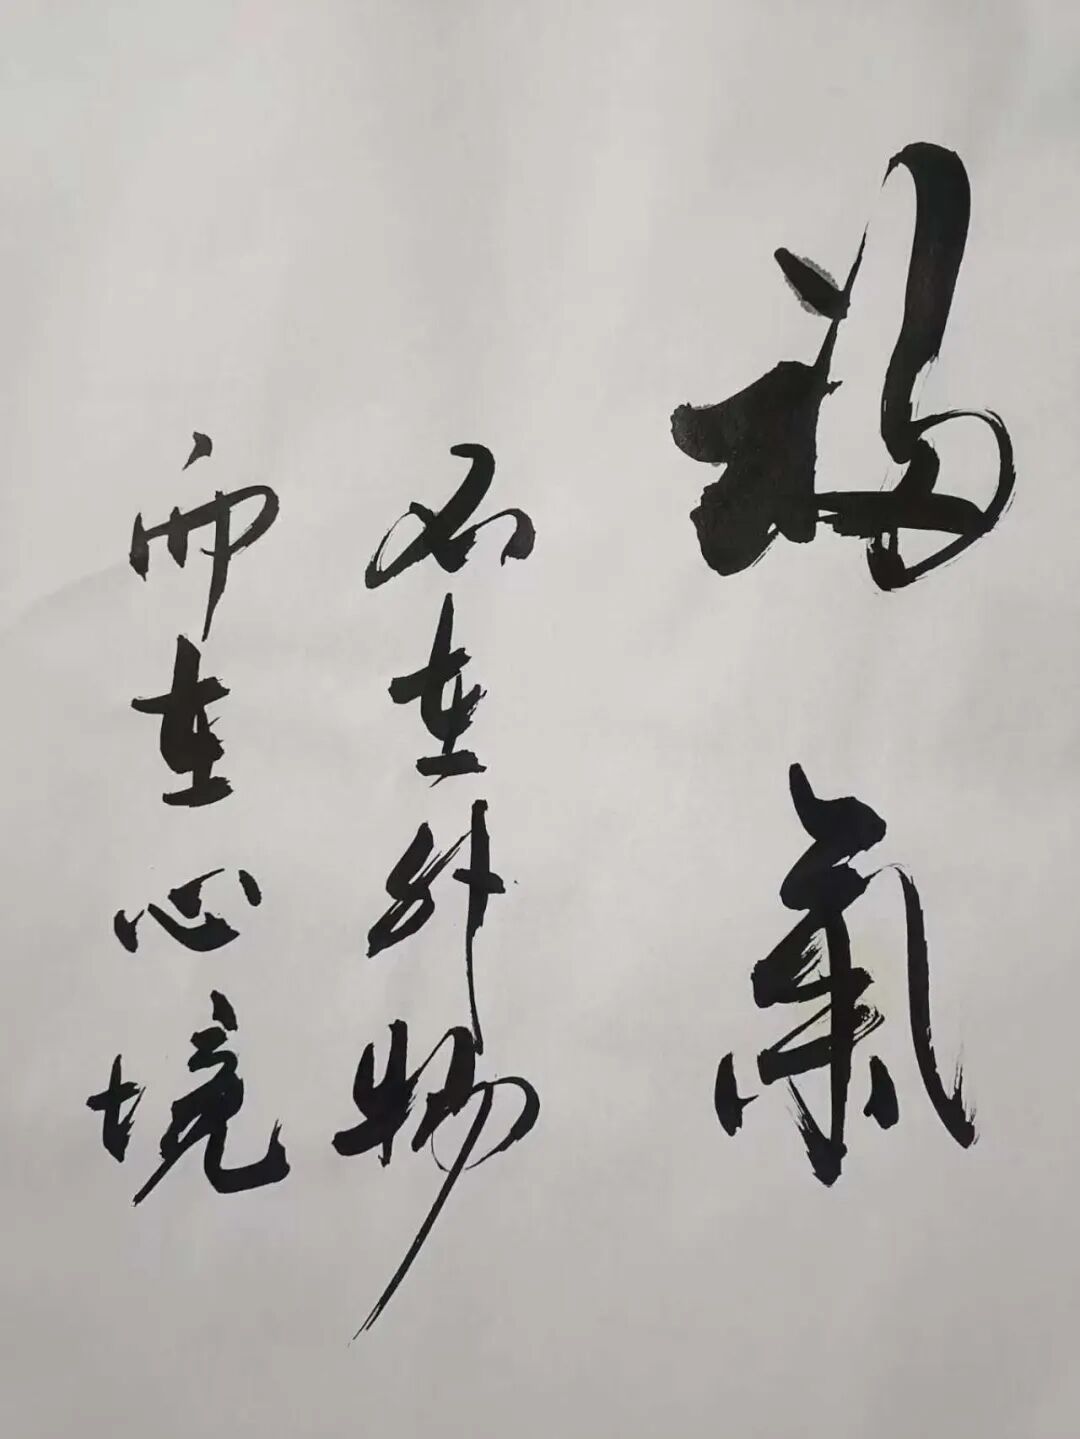 福氣
不在外物
而在心境